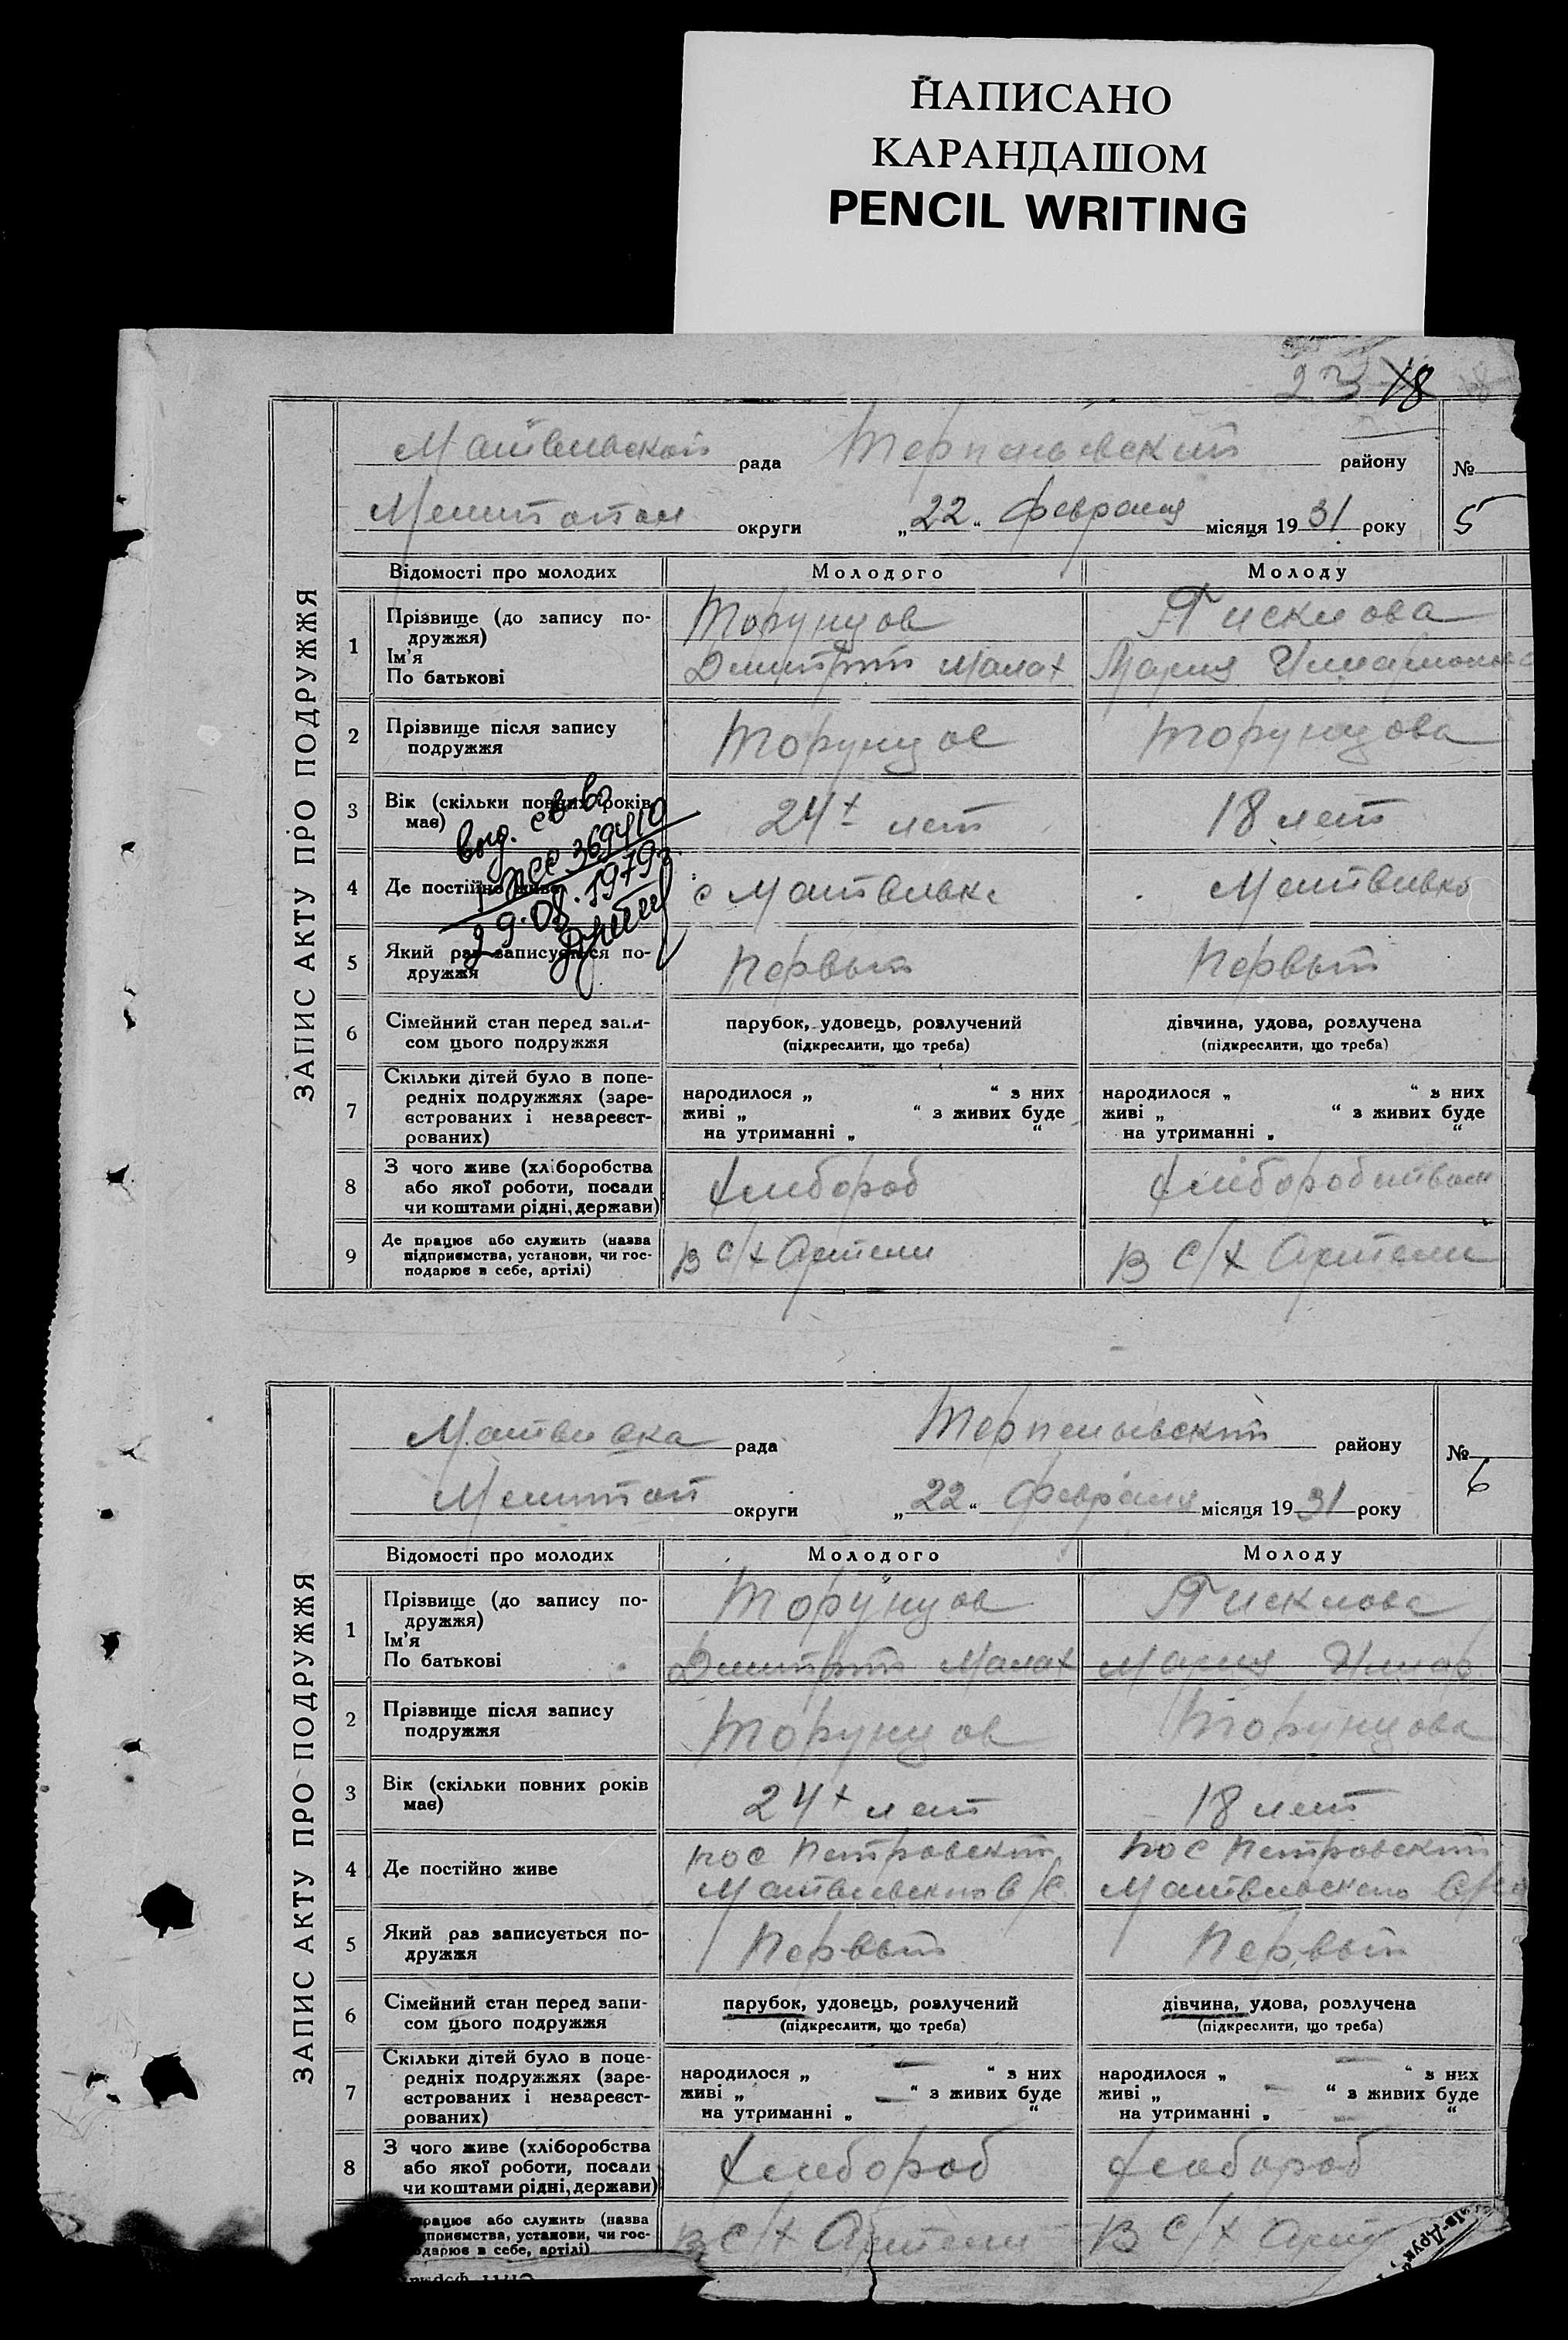 НАПИСАНО
КАРАНДАШОМ
PENCIL WRITING
23 18
ЗАПИС АКТУ ПРО ПОДРУЖЖЯ
Матвивской рада Терпеньевский району №
Мелитопол округи „22“ февраля місяця 1931 року 5
Відомості про молодих Молодого Молоду
1 Прізвище (до запису по-
дружжя)
Ім'я
По батькові
Торунцов
Дмитрий Малах
Мария
2 Прізвище після запису
подружжя
Торунцов Торунцова
3 Вік (скільки повних років
має)
24х лет 18 лет
выд. св-во
369410
29.08.1979г.
4 Де постійно живе с Матвивке Матвивка
5 Який раз записується по-
дружжя
Первый Первый
6 Сімейний стан перед запи-
сом цього подружжя
парубок, удовець, розлучений
(підкреслити, що треба)
дівчина, удова, розлучена
(підкреслити, що треба)
7 Скільки дітей було в попе-
редніх подружжях (заре-
єстрованих і незареєст-
рованих)
народилося „ “ з них
живі „ “ з живих буде
на утриманні „ “
народилося „ “ з них
живі „ “ з живих буде
на утриманні „ “
8 З чого живе (хліборобства
або якої роботи, посади
чи коштами рідні, держави)
Хлебороб Хлеборобством
9 Де працює або служить (назва
підприємства, установи, чи гос-
подарює в себе, артілі)
В С/Х Артели В С/Х Артели
ЗАПИС АКТУ ПРО ПОДРУЖЖЯ
Матвивка рада Терпеньевский району №
Мелитоп округи „22“ февраля місяця 1931 року 6
Відомості про молодих Молодого Молоду
1 Прізвище (до запису по-
дружжя)
Ім'я
По батькові
Торунцов
Дмитрий Малах
Мария
2 Прізвище після запису
подружжя
Торунцов Торунцова
3 Вік (скільки повних років
має)
24х лет 18 лет
4 Де постійно живе
пос Петровский
пос Петровский
5 Який раз записується по-
дружжя
Первый Первый
6 Сімейний стан перед запи-
сом цього подружжя
парубок, удовець, розлучений
(підкреслити, що треба)
дівчина, удова, розлучена
(підкреслити, що треба)
7 Скільки дітей було в попе-
редніх подружжях (заре-
єстрованих і незареєст-
рованих)
народилося „ — “ з них
живі „ — “ з живих буде
на утриманні „ “
народилося „ — “ з них
живі „ — “ з живих буде
на утриманні „ — “
8 З чого живе (хліборобства
або якої роботи, посади
чи коштами рідні, держави)
Хлебороб Хлебороб
рацює або служить (назва
дприємства, установи, чи гос-
одарює в себе, артілі)
В С/Х Артели В С/Х Арт